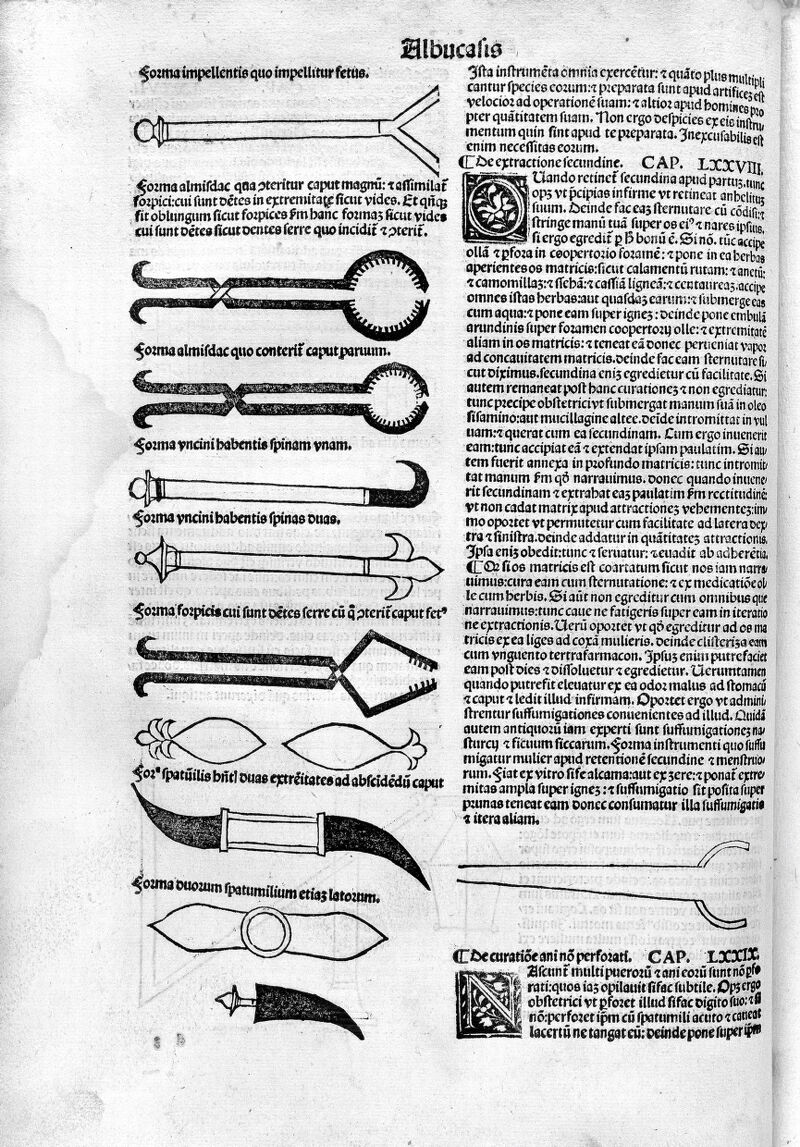 Albucasis
Forma impellentis quo impellitur fetus.
Forma almisdac qua ꝯteritur caput magnũ: ⁊ assimilat̃
forpici: cui sunt dẽtes in extremitate sicut vides. Et qñqꝫ
fit oblungum sicut forpices s̃m hanc formaꝫ sicut vides
cui sunt dẽtes sicut dentes serre quo incidit̃ ⁊ ꝯterit̃.
Forma almisdac quo conterit̃ caput paruum.
Forma vncini habentis spinam vnam.
Forma vncini habentis spinas duas.
Forma forpicis cui sunt dẽtes serre cũ q̃ ꝯterit̃ caput fetꝰ
Forꝰ spatu̇ilis hñt̃ duas extre̾itates ad abscidẽdũ caput
Forma duorum spatumilium etiaꝫ latorum.
Ista instrumẽta omnia exercẽtur: ⁊ quãto plus multipli
cantur species eorum: ⁊ preparata sunt apud artificeꝫ est
velocior ad operationẽ suam: ⁊ altior apud homines pro
pter quãtitatem suam. Non ergo despicies ex eis instru
mentum quin sint apud te preparata. Inexcusabilis est
enim necessitas eorum.
¶ De extractione secundine. CAP. LXXVIII.
QUando retinet̃ secundina apud partuꝫ. tunc
opꝫ vt p̃cipias infirme vt retineat anhelitus
suum. Deinde fac eaꝫ sternutare cũ cõdisi: ⁊
stringe manũ tuã super os eiꝰ ⁊ nares ipsius.
si ergo egredit̃ p̱ ħ bonũ ẽ. Si nõ. tũc accipe
ollã ⁊ ꝑfora in coopertorio foramẽ: ⁊ pone in ea herbas
aperientes os matricis: sicut calamentũ rutam: ⁊ anetũ:
⁊ camomillaꝫ: ⁊ sehã: ⁊ cassiã ligneã: ⁊ centaureaꝫ. accipe
omnes istas herbas: aut quasdaꝫ earum: ⁊ submerge eas
cum aqua: ⁊ pone eam super igneꝫ: deinde pone embulã
arundinis super foramen coopertorij olle: ⁊ extremitatẽ
aliam in os matricis: ⁊ teneat eã donec perueniat vapor
ad concauitatem matricis. deinde fac eam sternutare si
cut diximus. secundina eniꝫ egredietur cũ facilitate. Si
autem remaneat post hanc curationeꝫ ⁊ non egrediatur:
tunc precipe obstetrici vt submergat manum suã in oleo
sisamino: aut mucillagine altee. deĩde intromittat in vul
uam: ⁊ querat cum ea secundinam. Cum ergo inuenerit
eam: tunc accipiat eã ⁊ extendat ipsam paulatim. Si au
tem fuerit annexa in profundo matricis: tunc intromit
tat manum s̃m qõ narrauimus. donec quando inuene
rit secundinam ⁊ extrahat eaꝫ paulatim s̃m rectitudinẽ
vt non cadat matrix apud attractiones vehementeꝫ: im
mo oportet vt permutetur cum facilitate ad latera dex
tra ⁊ sinistra. deinde addatur in quãtitateꝫ attractionis.
Ipsa eniꝫ obedit: tunc ⁊ seruatur: ⁊ euadit ab adherẽtia.
¶ Qr̃ si os matricis ẽ coartatum sicut nos iam narra
uimus: cura eam cum sternutatione: ⁊ ex medicatiõe ol
le cum herbis. Si aũt non egredietur cum omnibus que
narrauimus: tunc caue ne fatigeris super eam in iteratio
ne extractionis. Uerũ oportet vt qõ egreditur ad os ma
tricis ex ea liges ad coxã mulieris. deinde clisteriza eam
cum vnguento tertrafarmacon. Ipsuꝫ enim putrefaciet
eam post dies ⁊ dissoluetur ⁊ egredietur. Uerumtamen
quando putrefit eleuatur ex ea odor malus ad stomacũ
⁊ caput ⁊ ledit illud infirmam. Oportet ergo vt admini
strentur suffumigationes conuenientes ad illud. Quidã
autem antiquorũ iam experti sunt suffumigationeꝫ na
sturcij ⁊ ficuum siccarum. Forma instrumenti quo suffu
migatur mulier apud retentionẽ secundine ⁊ menstruo
rum. Fiat ex vitro sife alcama: aut ex ẽre: ⁊ ponat̃ extre
mitas ampla super igneꝫ: ⁊ suffumigatio sit posita super
prunas teneat eam donec consumatur illa suffumigatio
⁊ itera aliam.
¶ De curatiõe ani nõ perforati. CAP. LXXIX.
NAscunt̃ multi puerorũ ⁊ ani eorũ sunt nõ ꝑfo
rati: quos iaꝫ opilauit sifac subtile. Opꝫ ergo
obstetrici vt ꝑforet illud sifac digito suo: ⁊ si
nõ: perforet ip̃m cũ spatumili acuto ⁊ caueat
lacertũ ne tangat eũ: deinde pone super ip̃m